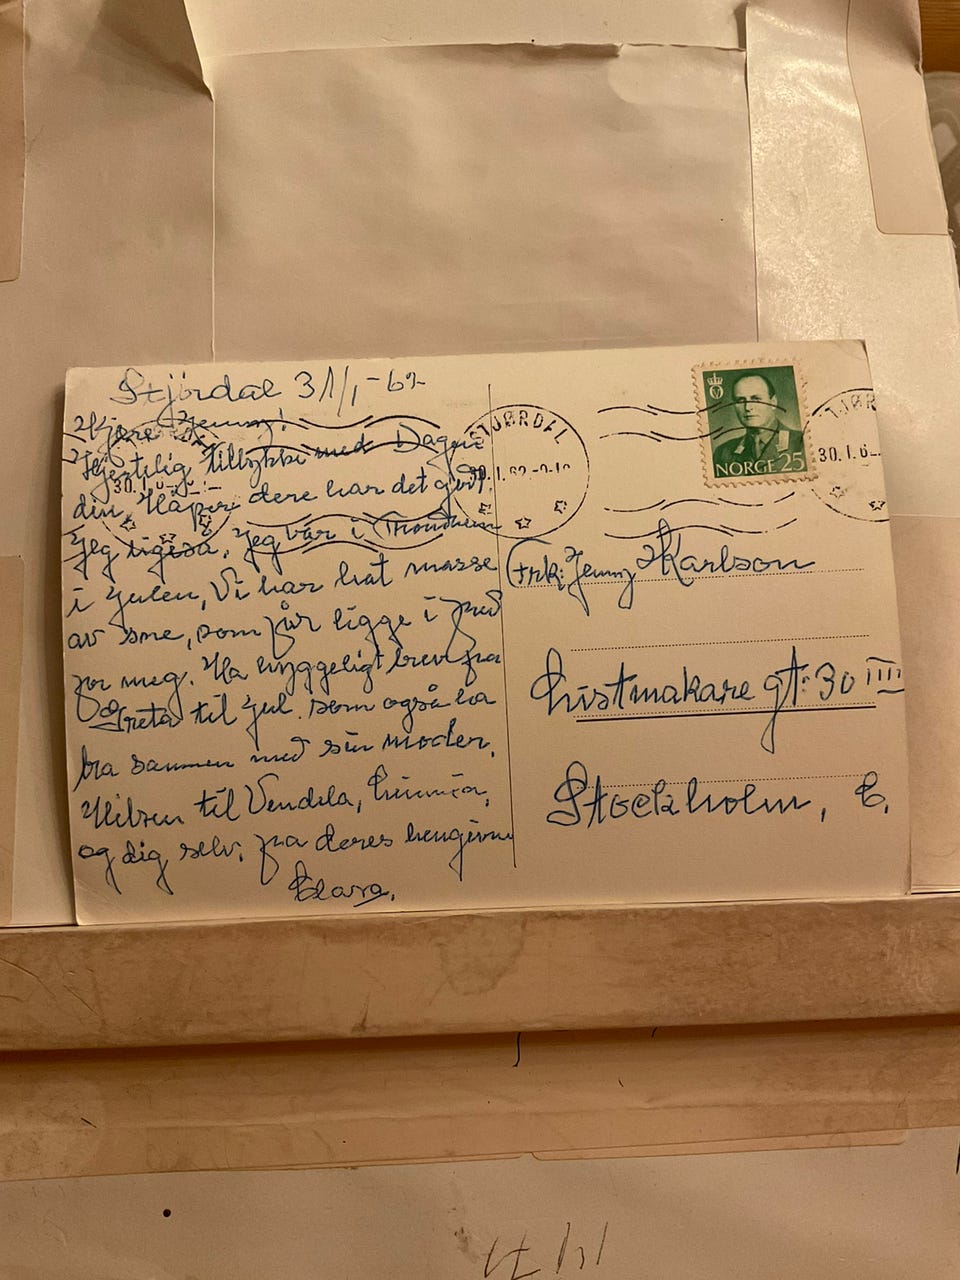 Stjørdal 31/1-62
Kjære Jenny!
Hjertelig tillykke med Dagen
din, Håper dere har det godt.
Jeg ligeså, Jeg var i Trondheim
i Julen, Vi har hat masse
av sne, som får ligge i fred
for meg. Ha hyggeligt brev fra
Greta til Jul. som også ha
bra sammen med sin moder,
Hilsen til Vendela,
og dig selv, fra deres hengivne
Clara.
STJØRDAL
30.1.62
NORGE 25
30.1.6
Frk: Jenny Karlson
Lustmakare gt: 30 IIII
Stockholm, C.